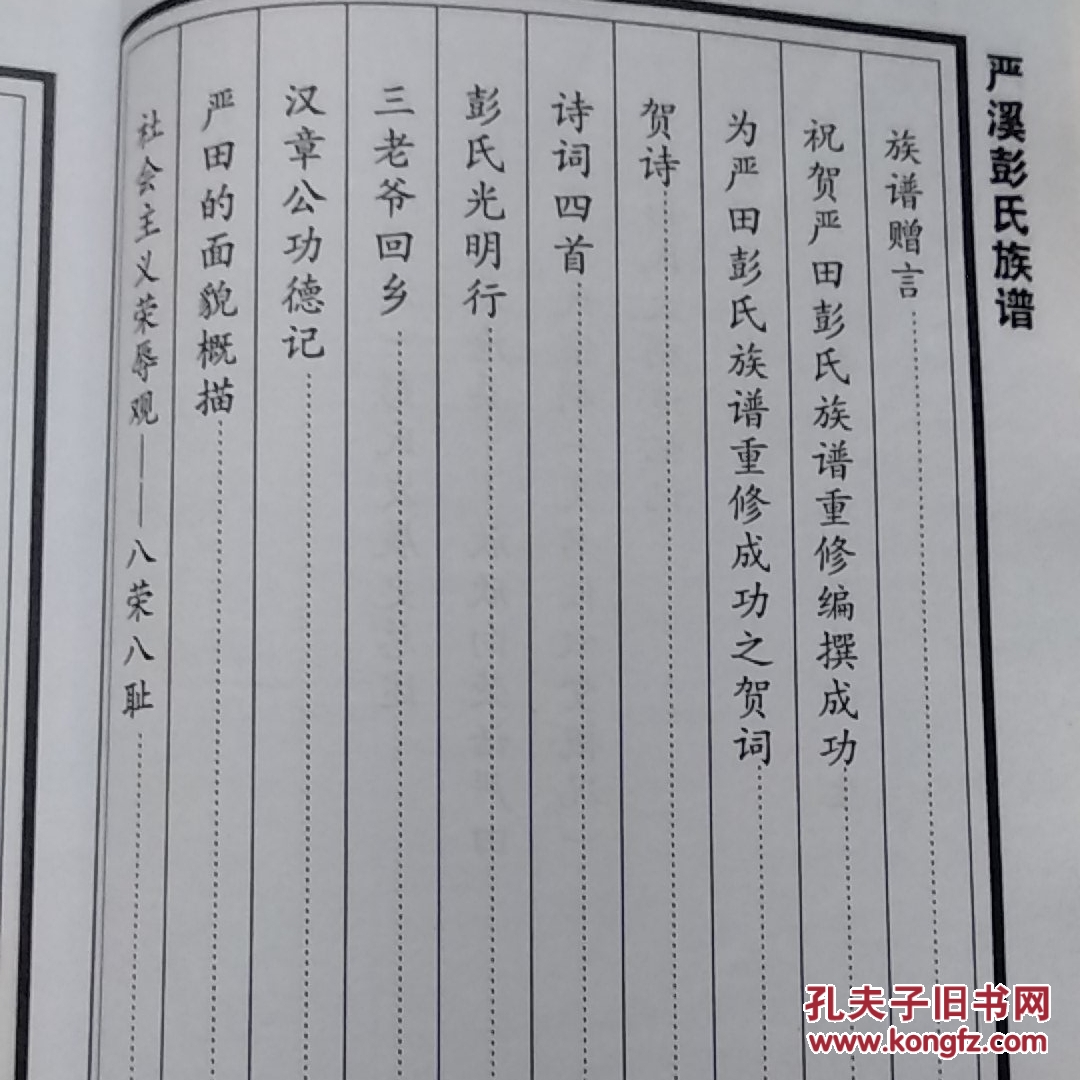 严溪彭氏族谱
族谱赠言
祝贺严田彭氏族谱重修编撰成功
为严田彭氏族谱重修成功之贺词
贺诗
诗词四首
彭氏光明行
三老爷回乡
汉章公功德记
严田的面貌概描
社会主义荣辱观——八荣八耻
孔夫子旧书网
www.kongfz.com